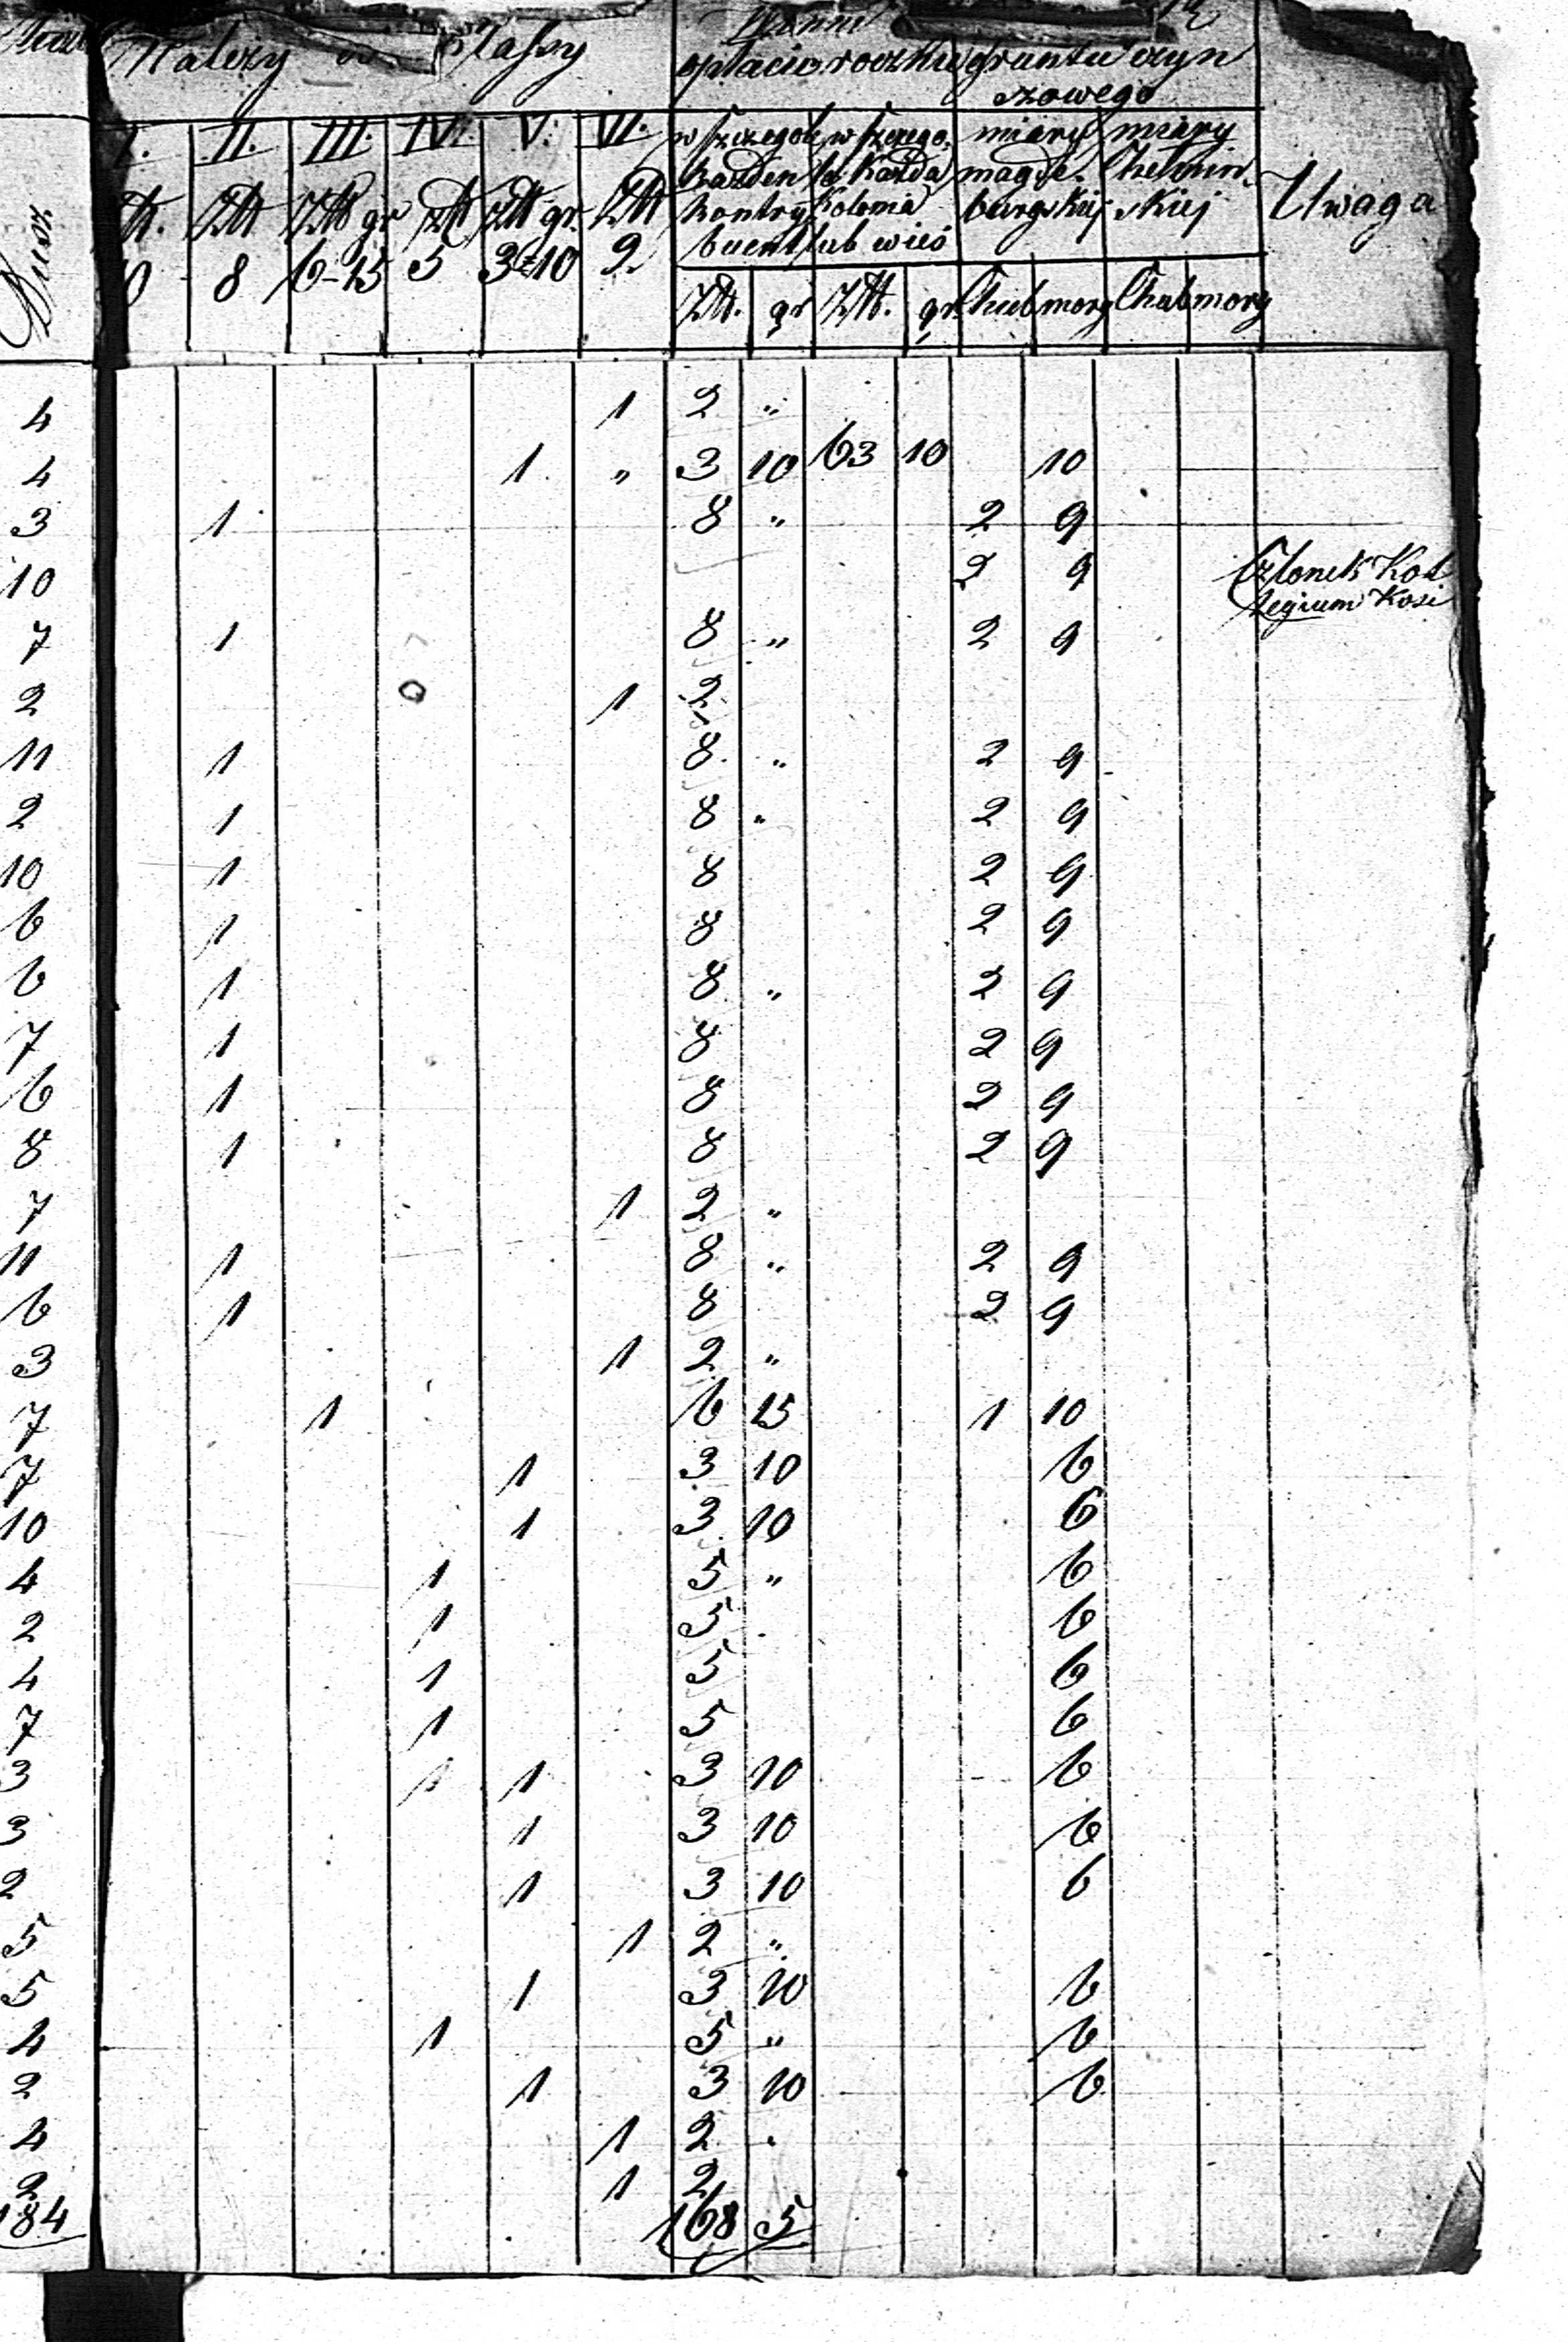 Należy Klassy
opłacić roczkie gruntu czyn
szowego
Dusz
I. II. III. IV. V. VI. w szczegole w szczego miary miary
każden le każda magde. Chełmin
Ztt Ztt gr Ztt Ztt gr. Ztt kontry Kolonia burgskiej skiej Uwaga
buent lub wieś
8 6-15 5 3-10 2
Ztt. gr Ztt. gr. Chub morg Chub morg
4 1 2 "
4 1 " 3 10 63 10 10
3 1 8 " 2 9
10 2 9 Członek Kol
legium Kosi
7 1 8 " 2 9
2 1 2
11 1 8 " 2 9
2 1 8 " 2 9
10 1 8 2 9
6 1 8 2 9
6 1 8 " 2 9
7 1 8 2 9
6 1 8 2 9
8 1 8 2 9
7 1 2 "
11 1 8 " 2 9
6 1 8 2 9
3 1 2 "
7 1 6 15 1 10
7 1 3 10 6
10 1 3 10 6
4 1 5 " 6
2 1 5 6
4 1 5 6
7 1 5 6
3 1 1 3 10 6
3 1 3 10 6
2 1 3 10 6
5 1 2 "
5 1 3 10 6
4 1 5 " 6
2 1 3 10 6
4 1 2 "
2 1 2
184 168 5